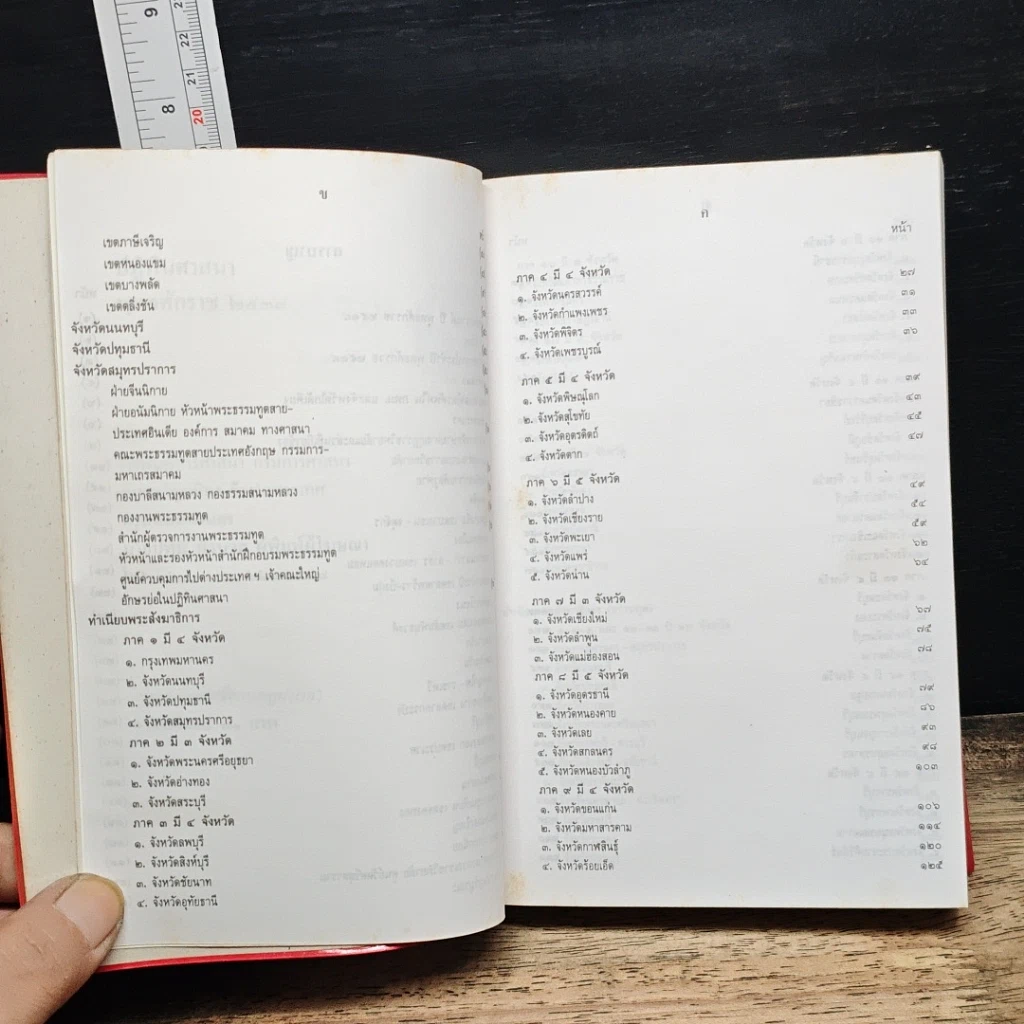 ข
เขตภาษีเจริญ
เขตหนองแขม
เขตบางพลัด
เขตตลิ่งชัน
จังหวัดนนทบุรี
จังหวัดปทุมธานี
จังหวัดสมุทรปราการ
ฝ่ายจีนนิกาย
ฝ่ายอนัมนิกาย หัวหน้าพระธรรมทูตสาย-
ประเทศอินเดีย องค์การ สมาคม ทางศาสนา
คณะพระธรรมทูตสายประเทศอังกฤษ กรรมการ-
มหาเถรสมาคม
กองบาลีสนามหลวง กองธรรมสนามหลวง
กองงานพระธรรมทูต
สำนักผู้ตรวจการงานพระธรรมทูต
หัวหน้าและรองหัวหน้าสำนักฝึกอบรมพระธรรมทูต
ศูนย์ควบคุมการไปต่างประเทศ ฯ เจ้าคณะใหญ่
อักษรย่อในปฏิทินศาสนา
ทำเนียบพระสังฆาธิการ
ภาค ๑ มี ๔ จังหวัด
๑. กรุงเทพมหานคร
๒. จังหวัดนนทบุรี
๓. จังหวัดปทุมธานี
๔. จังหวัดสมุทรปราการ
ภาค ๒ มี ๓ จังหวัด
๑. จังหวัดพระนครศรีอยุธยา
๒. จังหวัดอ่างทอง
๓. จังหวัดสระบุรี
ภาค ๓ มี ๔ จังหวัด
๑. จังหวัดลพบุรี
๒. จังหวัดสิงห์บุรี
๓. จังหวัดชัยนาท
๔. จังหวัดอุทัยธานี
ค
หน้า
ภาค ๔ มี ๔ จังหวัด
๑. จังหวัดนครสวรรค์ ๒๗
๒. จังหวัดกำแพงเพชร ๓๑
๓. จังหวัดพิจิตร ๓๓
๔. จังหวัดเพชรบูรณ์ ๓๖
ภาค ๕ มี ๔ จังหวัด
๑. จังหวัดพิษณุโลก ๓๙
๒. จังหวัดสุโขทัย ๔๓
๓. จังหวัดอุตรดิตถ์ ๔๕
๔. จังหวัดตาก ๔๗
ภาค ๖ มี ๕ จังหวัด
๑. จังหวัดลำปาง ๔๙
๒. จังหวัดเชียงราย ๕๔
๓. จังหวัดพะเยา ๕๙
๔. จังหวัดแพร่ ๖๒
๕. จังหวัดน่าน ๖๔
ภาค ๗ มี ๓ จังหวัด
๑. จังหวัดเชียงใหม่ ๖๗
๒. จังหวัดลำพูน ๗๕
๓. จังหวัดแม่ฮ่องสอน ๗๘
ภาค ๘ มี ๕ จังหวัด
๑. จังหวัดอุดรธานี ๗๙
๒. จังหวัดหนองคาย ๘๖
๓. จังหวัดเลย ๙๓
๔. จังหวัดสกลนคร ๙๘
๕. จังหวัดหนองบัวลำภู ๑๐๓
ภาค ๙ มี ๔ จังหวัด
๑. จังหวัดขอนแก่น ๑๐๖
๒. จังหวัดมหาสารคาม ๑๑๔
๓. จังหวัดกาฬสินธุ์ ๑๒๐
๔. จังหวัดร้อยเอ็ด ๑๒๕
9
22
21
8
20